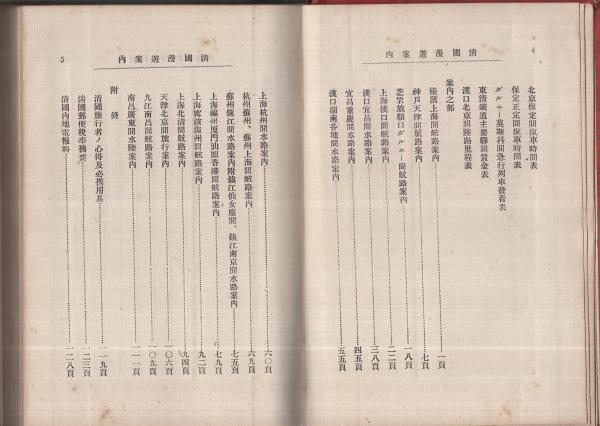 4
清國漫遊案内
北京保定間滊車時間表
保定正定間滊車時間表
ダルニー莫斯科間急行列車發着表
東清鐵道主要驛間賃金表
漢口北京間陸路里程表
案内之部
橫濱上海間航路案内……一頁
神戸天津間航路案内……七頁
芝罘旅順口ダルニー間航路案内……一八頁
上海漢口間航路案内……二二頁
漢口宜昌間水路案内……三八頁
宜昌重慶間水路案内……四五頁
漢口湖南各地間水路案内……五五頁
清國漫遊案内
5
上海杭州間水路案内……六〇頁
杭州蘇州、蘇州上海間航路案内……六九頁
蘇州鎭江間水路案内附鎭江仙女廟間、鎭江南京間水路案内……七五頁
上海福州厦門汕頭香港間航路案内……七九頁
上海寧波温州間航路案内……九二頁
上海北清間航路案内……九四頁
天津北京間旅行案内……一〇六頁
九江南昌間航路案内……一〇九頁
南昌廣東間水陸案内……一一一頁
附錄
清國旅行者ノ心得及必携用具……一一九頁
清國郵便税率摘要……一二三頁
清國内地電報料……一二八頁